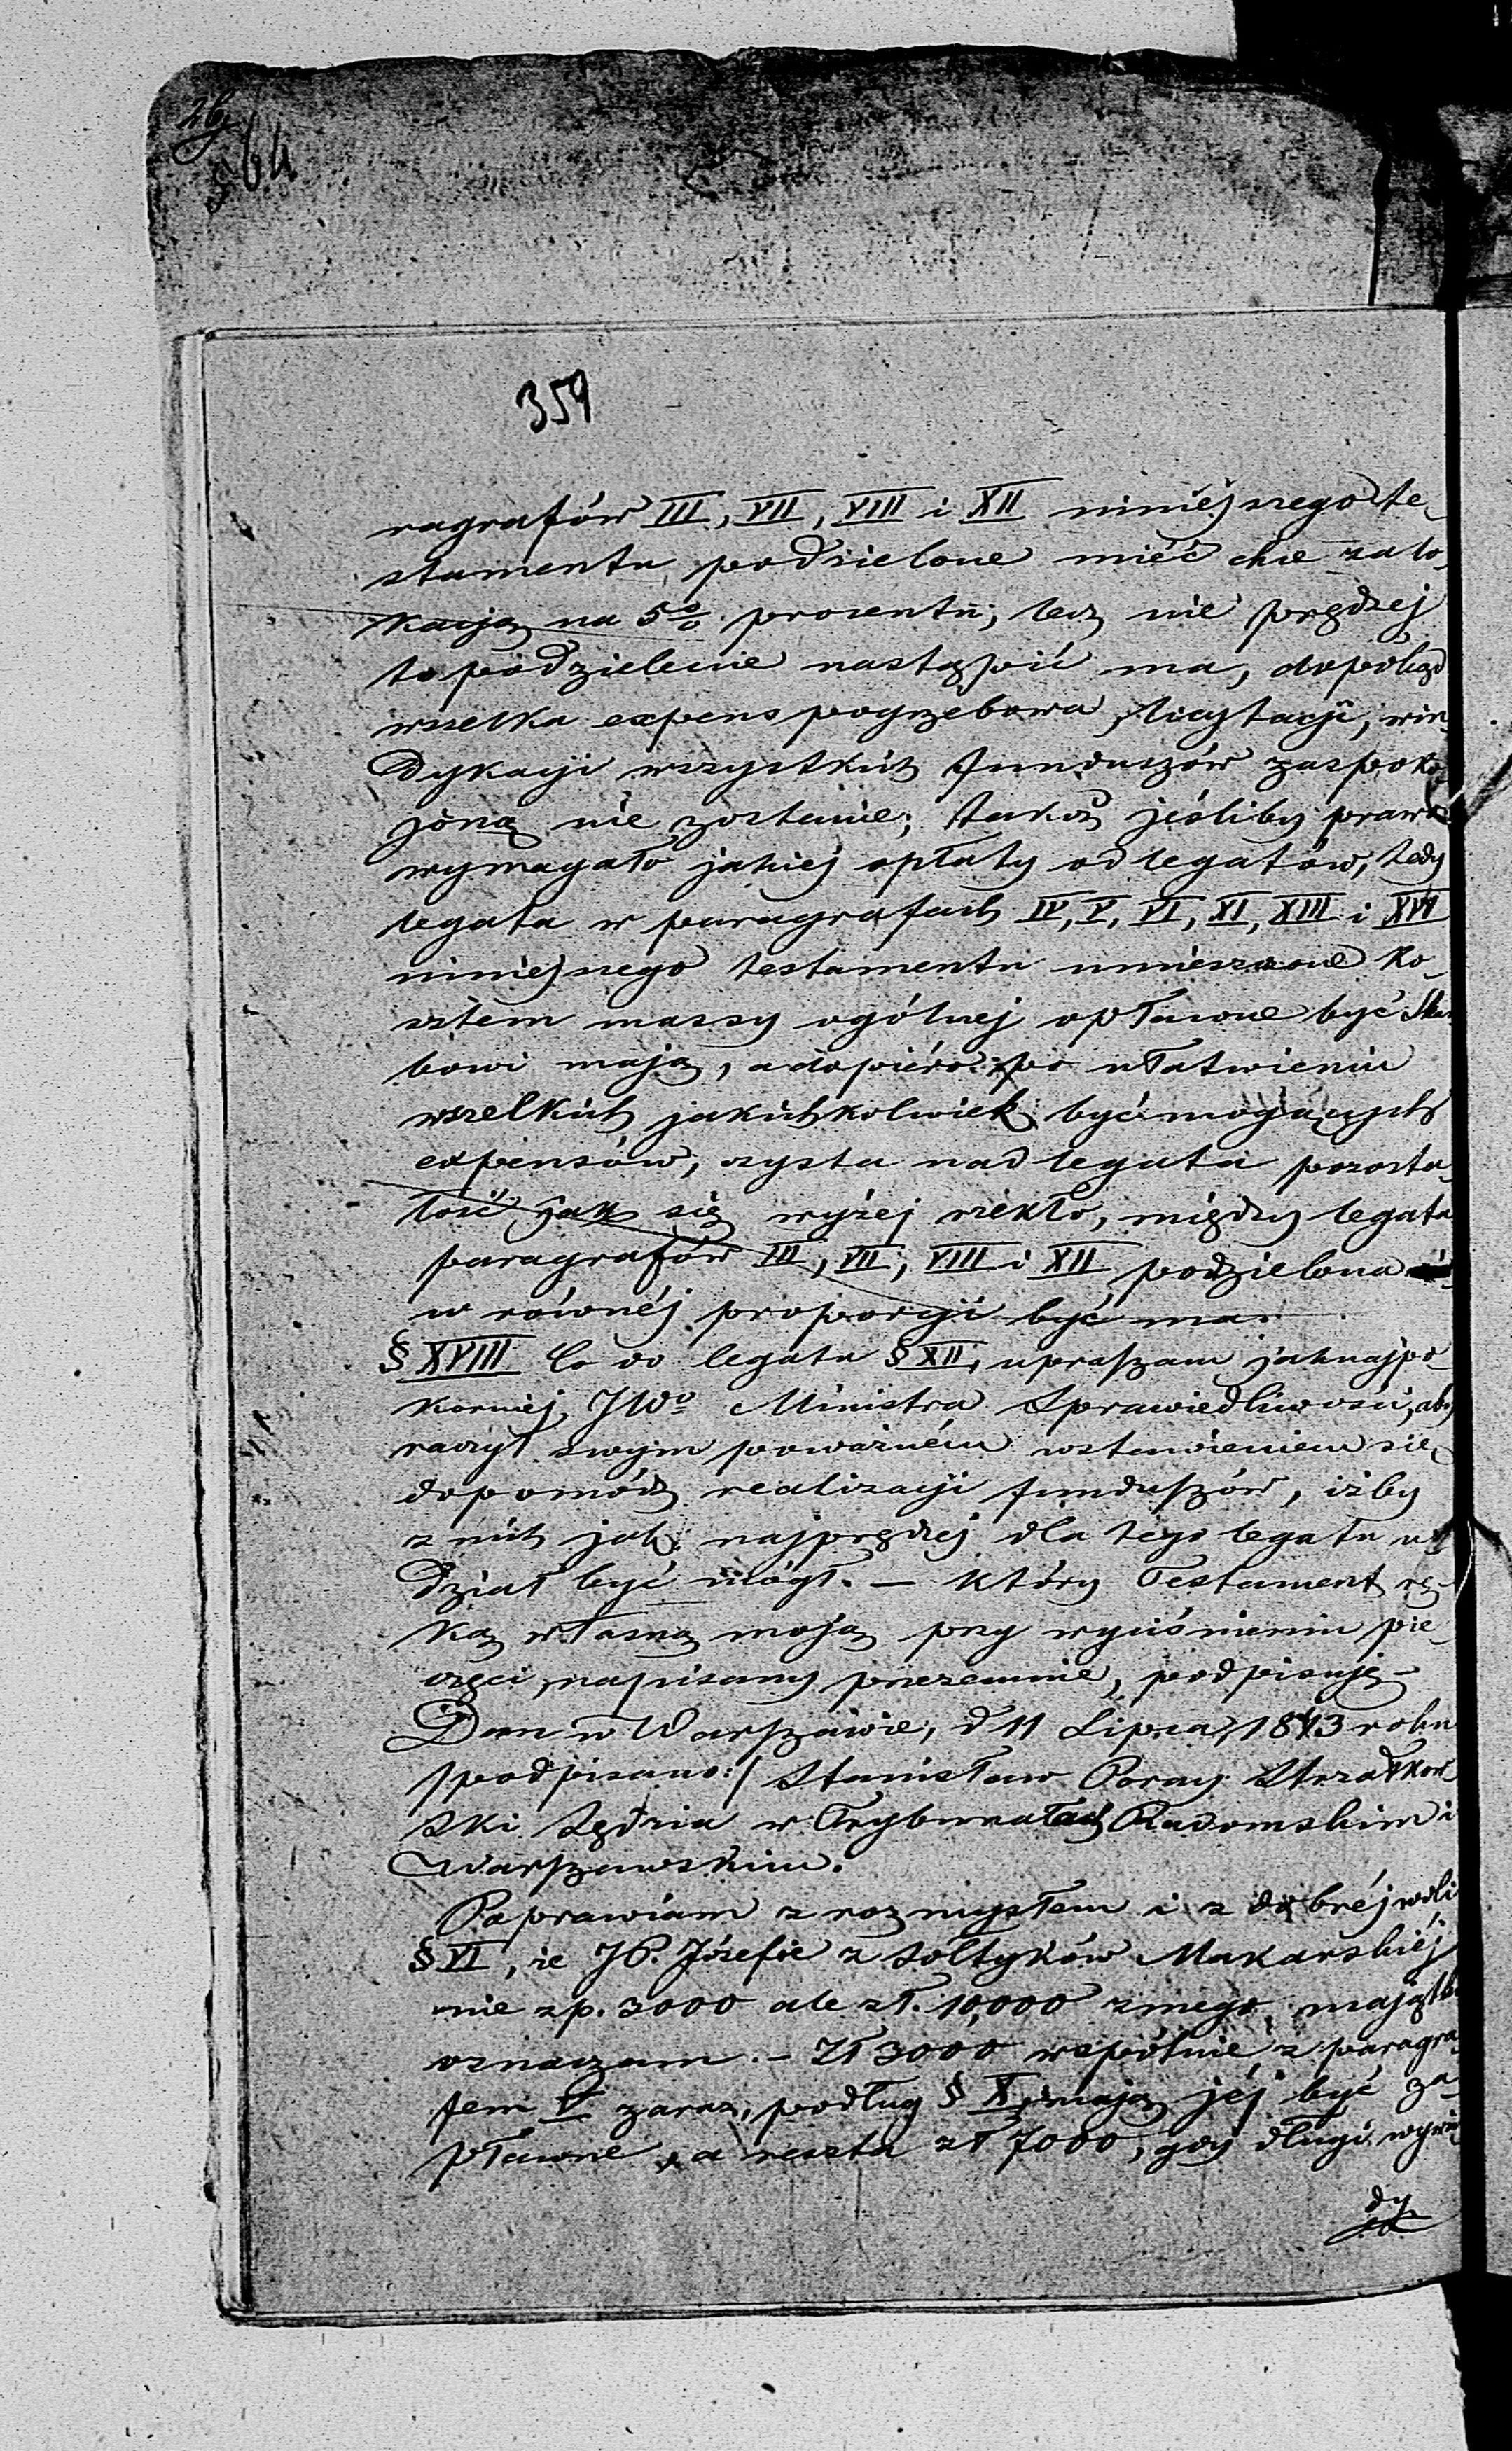 359
ragrafów III, VII, VIII i XII niniejszego te-
stamentu podzielone mieć chcę za lo-
kacją na 5% procentu; lecz nie prędzej
to podzielenie nastąpić ma, dopókąd
wszelka expens pogrzebowa, licytacji, win-
dykacji wszystkich funduszów zaspoko-
joną nie zostanie; takoż jeśliby prawo
wymagało jakiej opłaty od legatów, tedy
legata w paragrafach IV, V, VI, XI, XIII i XVI
niniejszego testamentu umieszczone ko-
sztem massy ogólnej opłacone być Skar-
bowi mają, a dopiero po ułatwieniu
wszelkich jakichkolwiek być mogących
expensów, czysta nad legata pozosta-
łość jak się wyżej rzekło, między legata
paragrafów III, VII, VIII i XII podzielona
w równéj proporcji być ma.
§ XVIII Co do legatu § XII, upraszam jaknajpo-
korniej JWo Ministra Sprawiedliwości, aby
raczył swym poważném wstawieniem się
dopomódz realizacji funduszów, iżby
z nich jak najprędzej dla tego legatu u-
dział być mógł. — który Testament rę-
ką własną moją przy wyciśnieniu pie-
częci, napisany przezemnie, podpisuję —
Dan w Warszawie, d 11 Lipca 1843 roku
/podpisano:/ Stanisław Poray Strzałkow-
ski Sędzia w Trybunałach Radomskim i
Warszawskim.
Poprawiam z rozmysłem i z dobréj woli
§ VI, że JP. Józefie z Sołtyków Makarskiéj
nie zp. 3000 ale zł. 10,000 z mego majątku
oznaczam. — Zł 3000 wspólnie z paragra-
fem V zaraz, podług § X, mają jéj być za-
płacone, a reszta zł 7000, gdy długi wywin-
dy